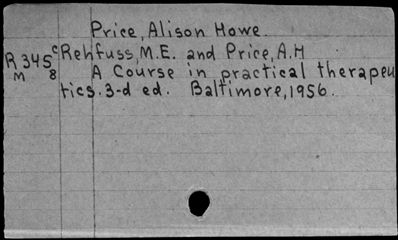 Price, Alison Howe.
R345 c Rehfuss, M.E. and Price, A.H
M 8 A Course in practical therapeu
tics. 3-d ed. Baltimore, 1956.